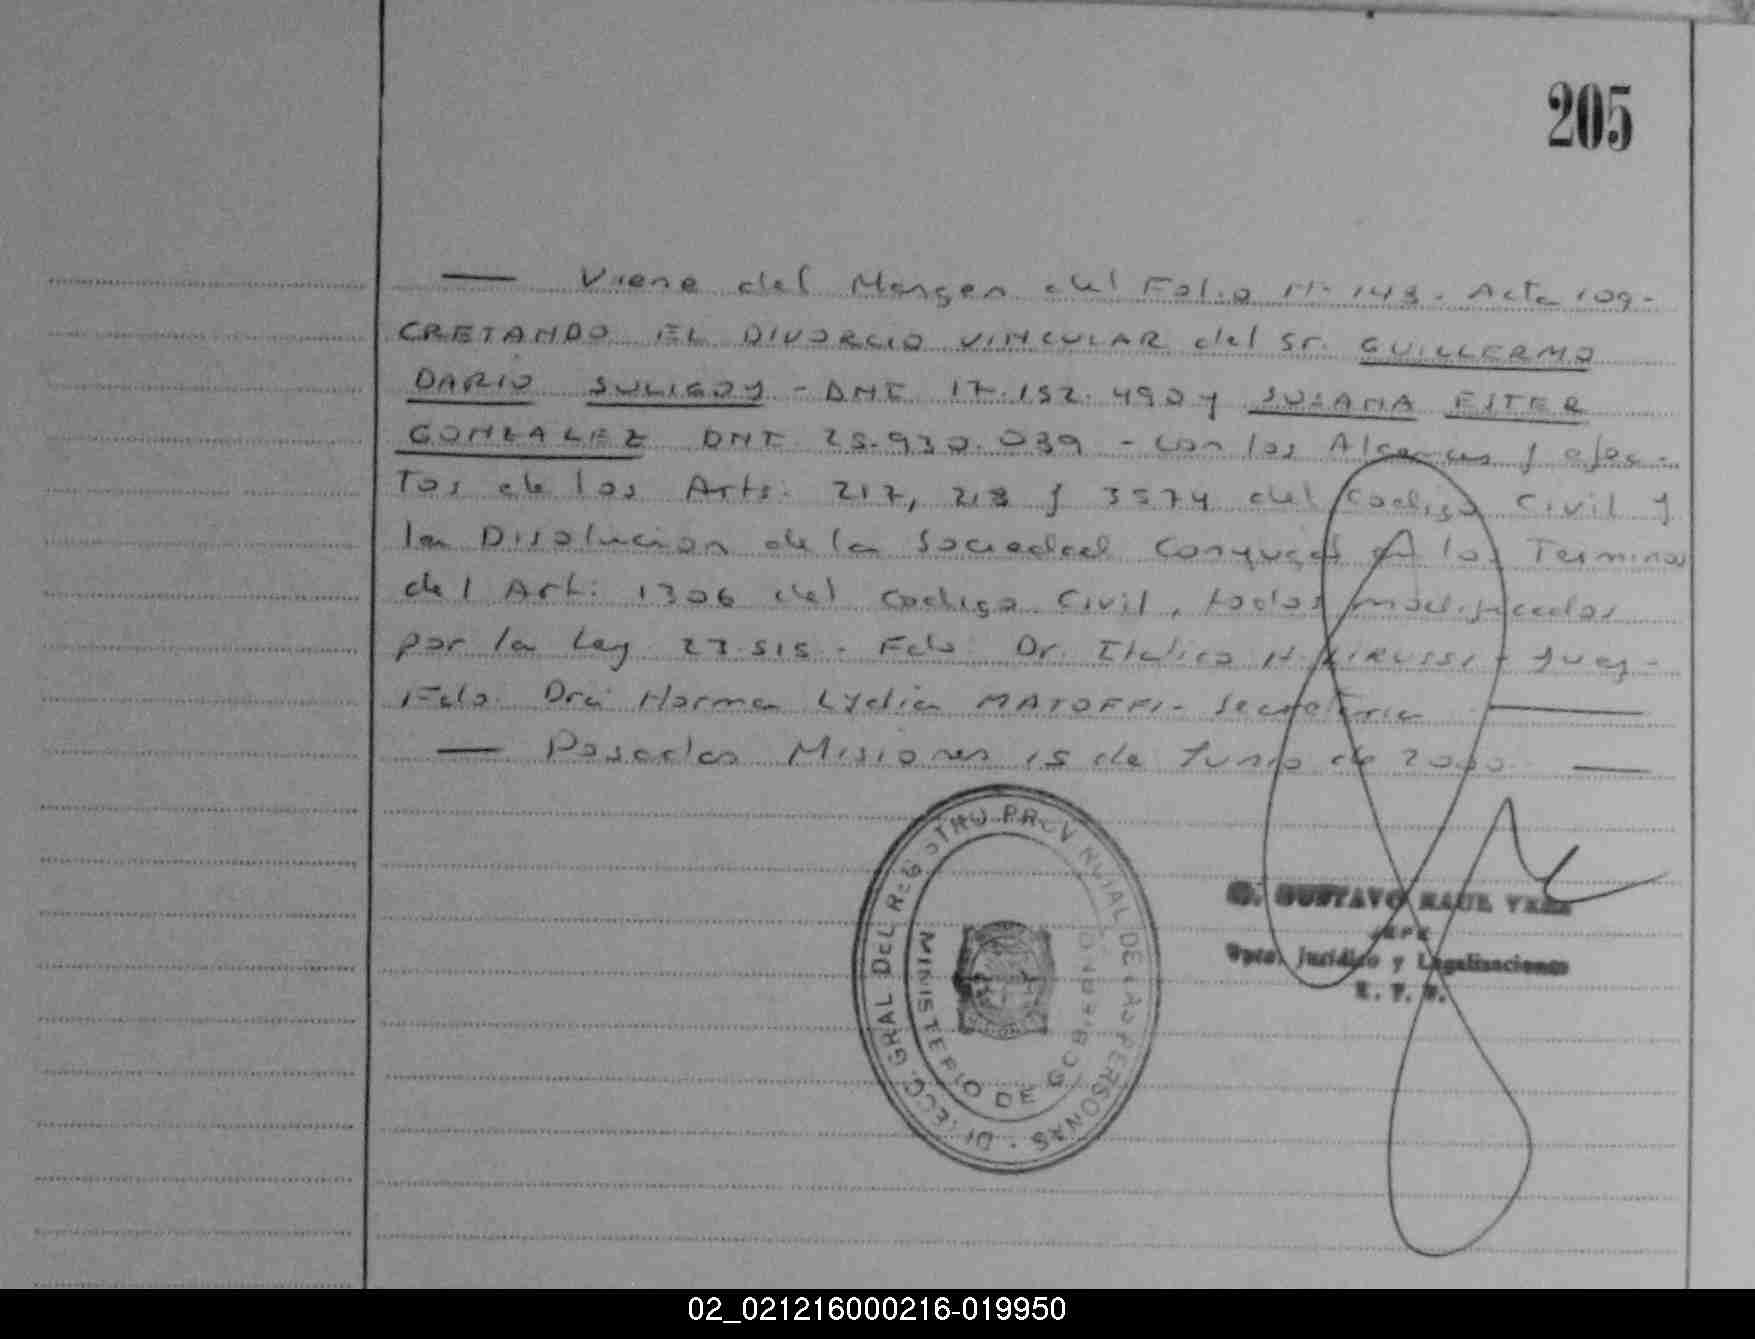 205
— Viene del Margen del Folio Nº 148. Acta 109-
CRETANDO EL DIVORCIO VINCULAR del Sr. GUILLERMO
DARIO SULIGOY - DNI 17.152.490 y SUSANA ESTER
GONZALEZ DNI 25.930.039 - con los Alcances y efec-
tos de los Arts. 217, 218 y 3574 del Codigo Civil y
la Disolucion de la Sociedad Conyugal en los Terminos
del Art. 1306 del Codigo Civil, todos modificados
por la Ley 23.515. Fdo Dr. Italico - Juez-
Fdo. Dra Norma Lydia MATOFFI- Secretaria —
— Posadas Misiones 15 de Junio de 2000 —
DIRECC. GRAL DEL REGISTRO PROVINCIAL DE LAS PERSONAS
MINISTERIO DE GOBIERNO
GUSTAVO RAUL
JEFE
Dpto. Jurídico y Legalizaciones
R. P. P.
02_021216000216-019950